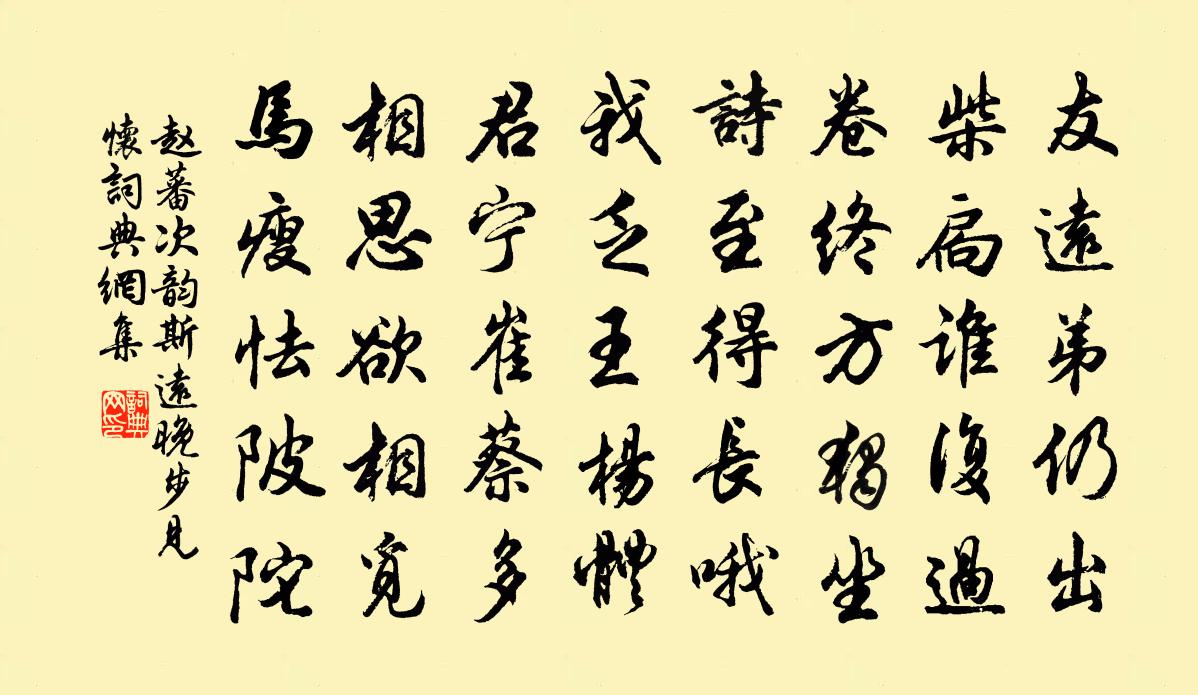 友遠弟仍出
柴扃誰復過
卷终方獨坐
詩至得長哦
我乏王楊體
君宁崔蔡多
相思欲相覓
馬瘦怯陂陀
赵蕃次韵斯遠晚步見
懷詞典網集
詞典网印